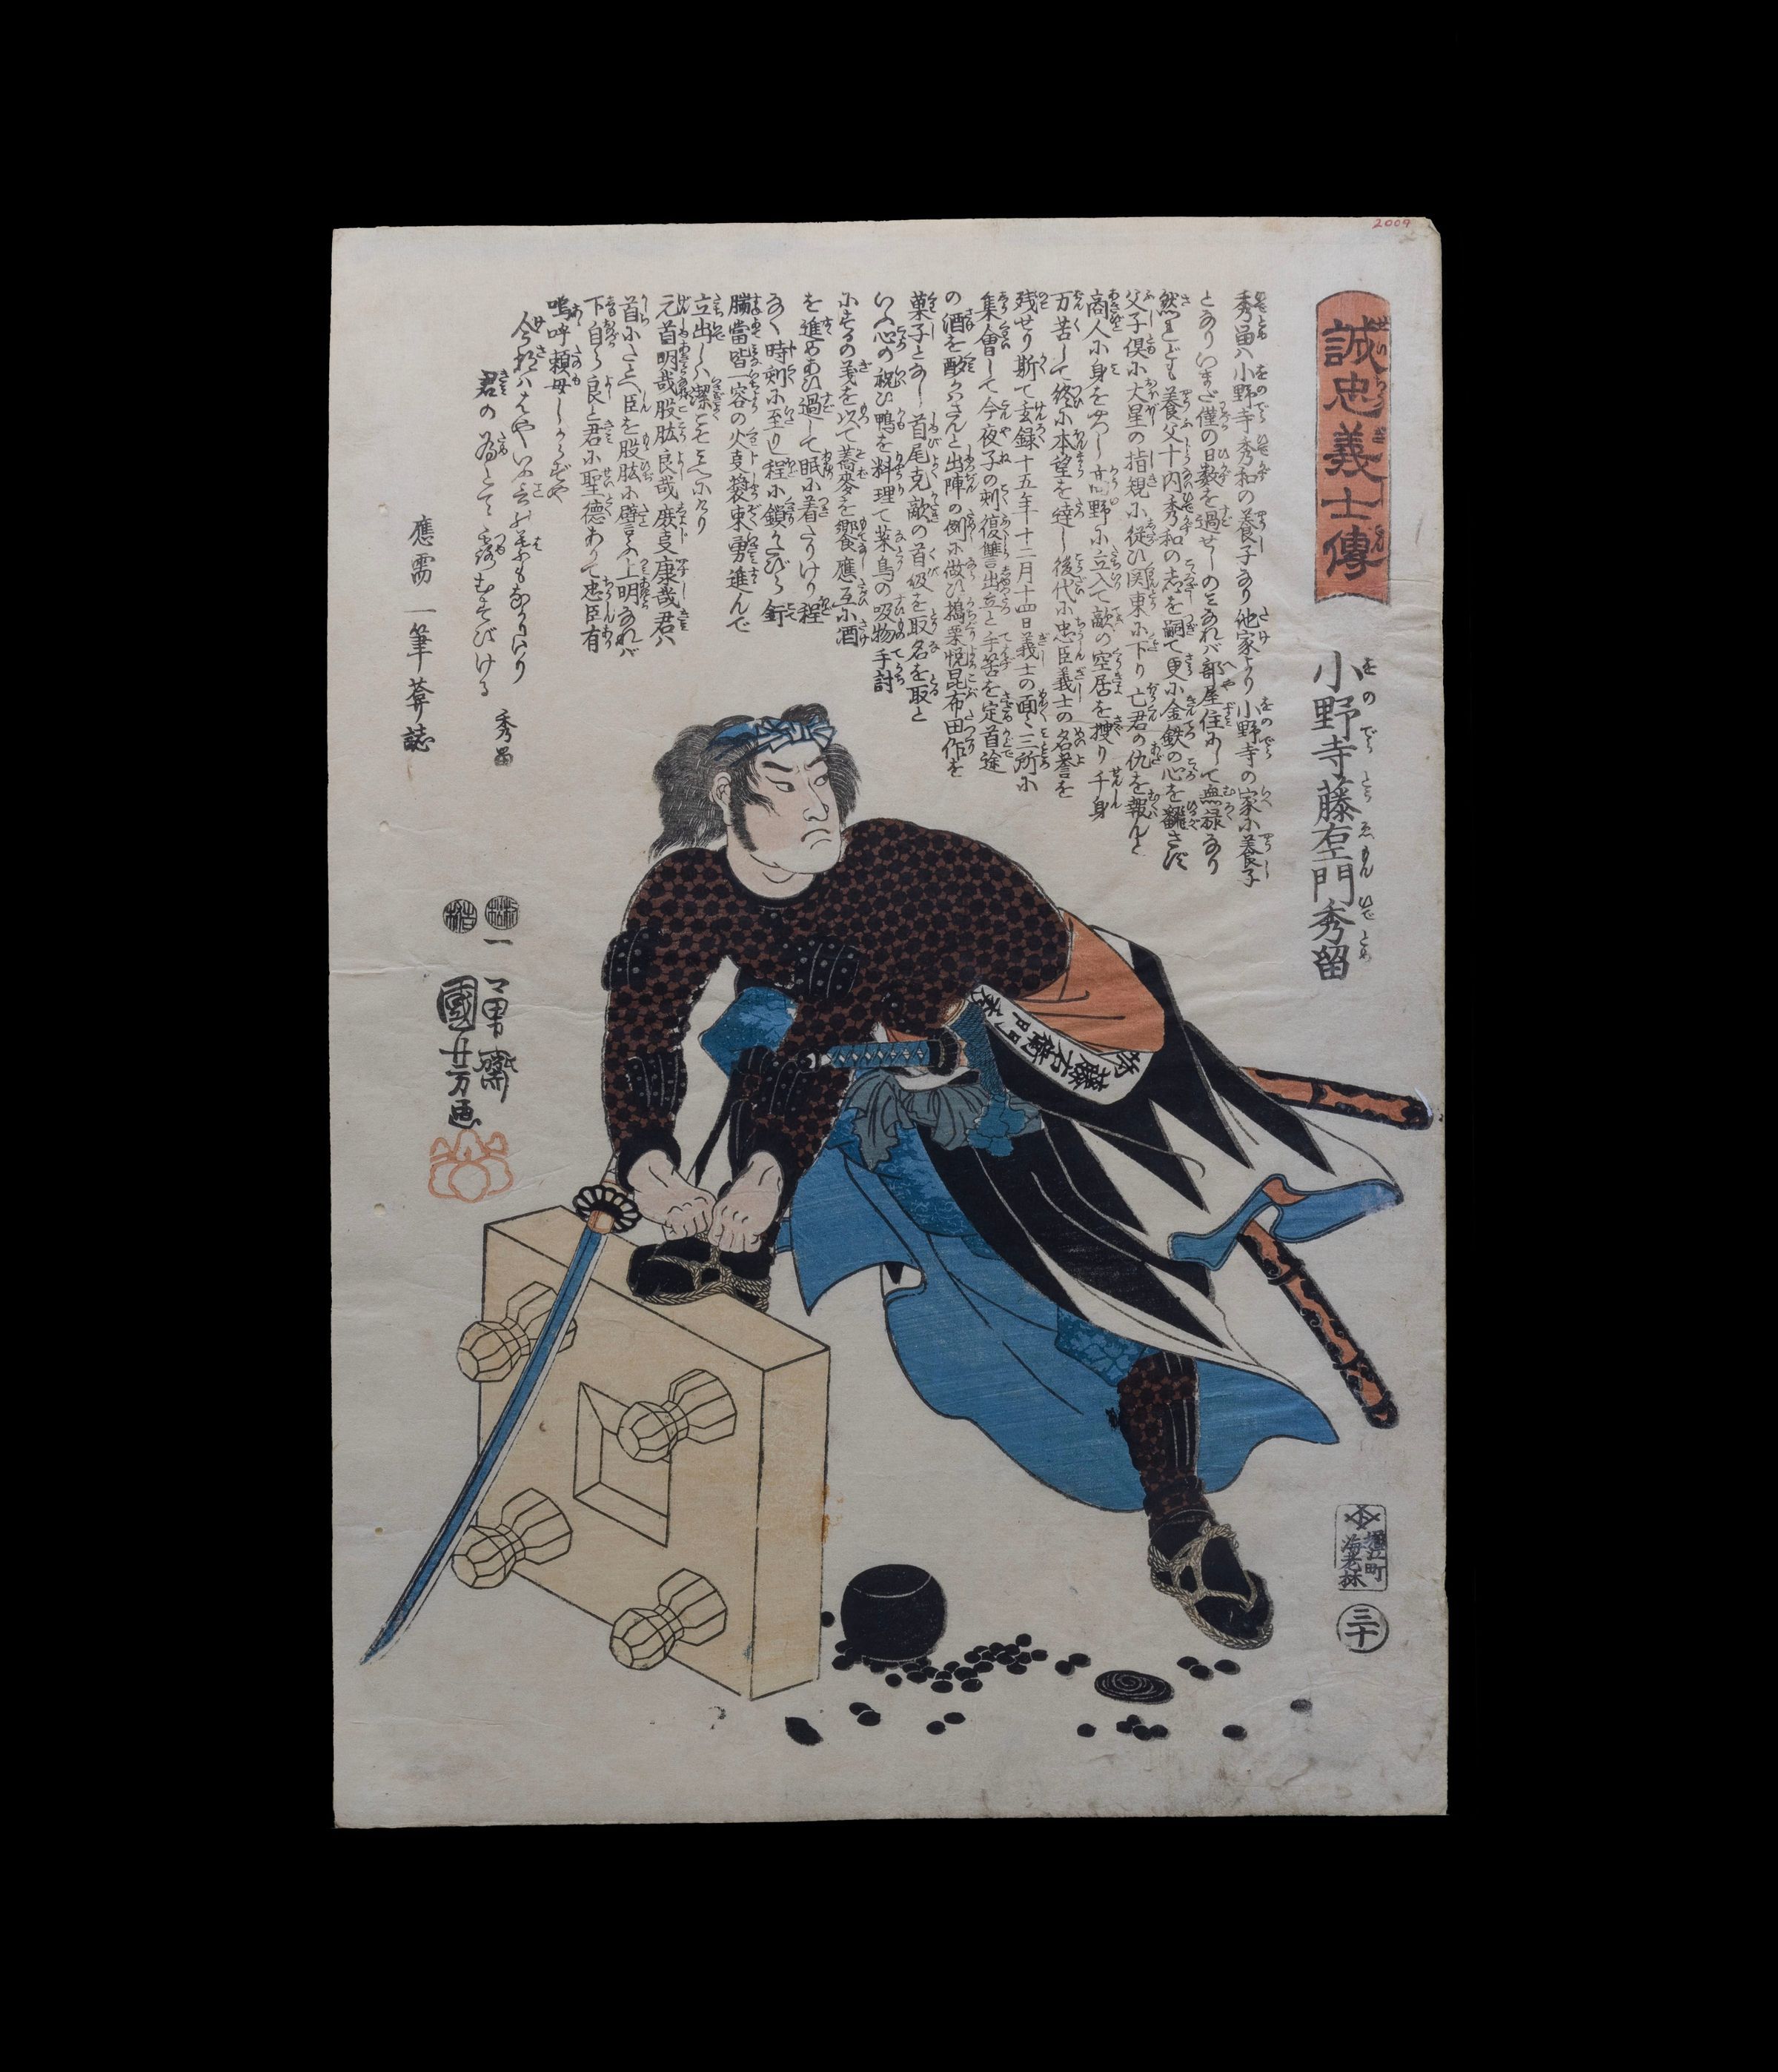 誠忠義士傳
せいちうぎしでん
小野寺藤右エ門秀留
をのでらとうゑもんひでとめ
秀留ハ小野寺秀和の養子なり他家より小野寺の家に養子
となりいまだ僅の日数を過せしのミなれバ部屋住にして無禄なり
然れども養父十内秀和の志を嗣て更に金鉄の心を飜さず
父子倶に大星の指規に従ひ関東に下り亡君の仇を報んと
商人に身をやつし
野に立入て敵の空居を捜り千身
万苦して終に本望を達し後代に忠臣義士の名誉を
残せり斯て玄録十五年十二月十四日義士の面々三所に
集會して今夜子の刻復讐出立と手筈を定首途
の酒を酌かはさんと出陣の例に倣ひ搗栗悦昆布田作を
菓子となし首尾克敵の首級を取名を取と
いふ心の祝ひ鴨を料理て菜鳥の吸物手討
にするの義を以て蕎麥を饗應互に酒
を進めあひ過して眠に着たりけり程
なく時刻に至り程に鎖かたびら釿
臑當皆一容の火支装束勇進んで
立出しハ潔くこそ見へにけり
元首明哉股肱良哉庶支康哉君ハ
首にたとへ臣を股肱に譬ふ上明なれバ
下自ら良と君に聖徳ありて忠臣有
嗚呼頼母しからずや
今朝ハはやいふ言の葉もなかりけり
君の為とて露むすびける
秀留
應需 一筆葊誌
一勇齋
國芳画
物藤右衛門
樋正町
海老林
三十
2009